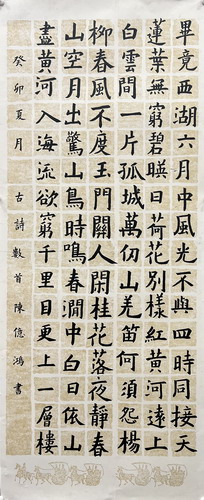 畢竟西湖六月中風光不與四時同接天
蓮葉無窮碧暎日荷花別樣紅黄河遠上
白雲間一片孤城萬仞山羌笛何須怨楊
柳春風不度玉門關人閑桂花落夜靜春
山空月出驚山鳥時鳴春澗中白日依山
盡黄河入海流欲窮千里目更上一層樓
癸卯夏月 古詩數首 陳億鴻書